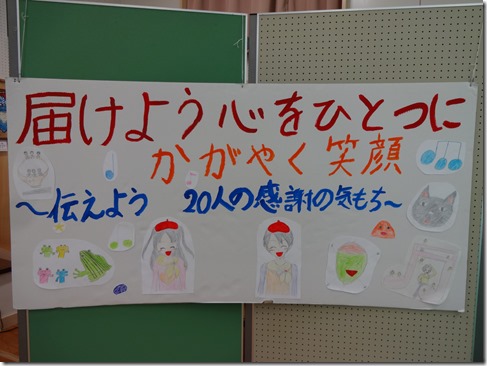 届けよう心をひとつに
かがやく笑顔
～伝えよう 20人の感謝の気もち～